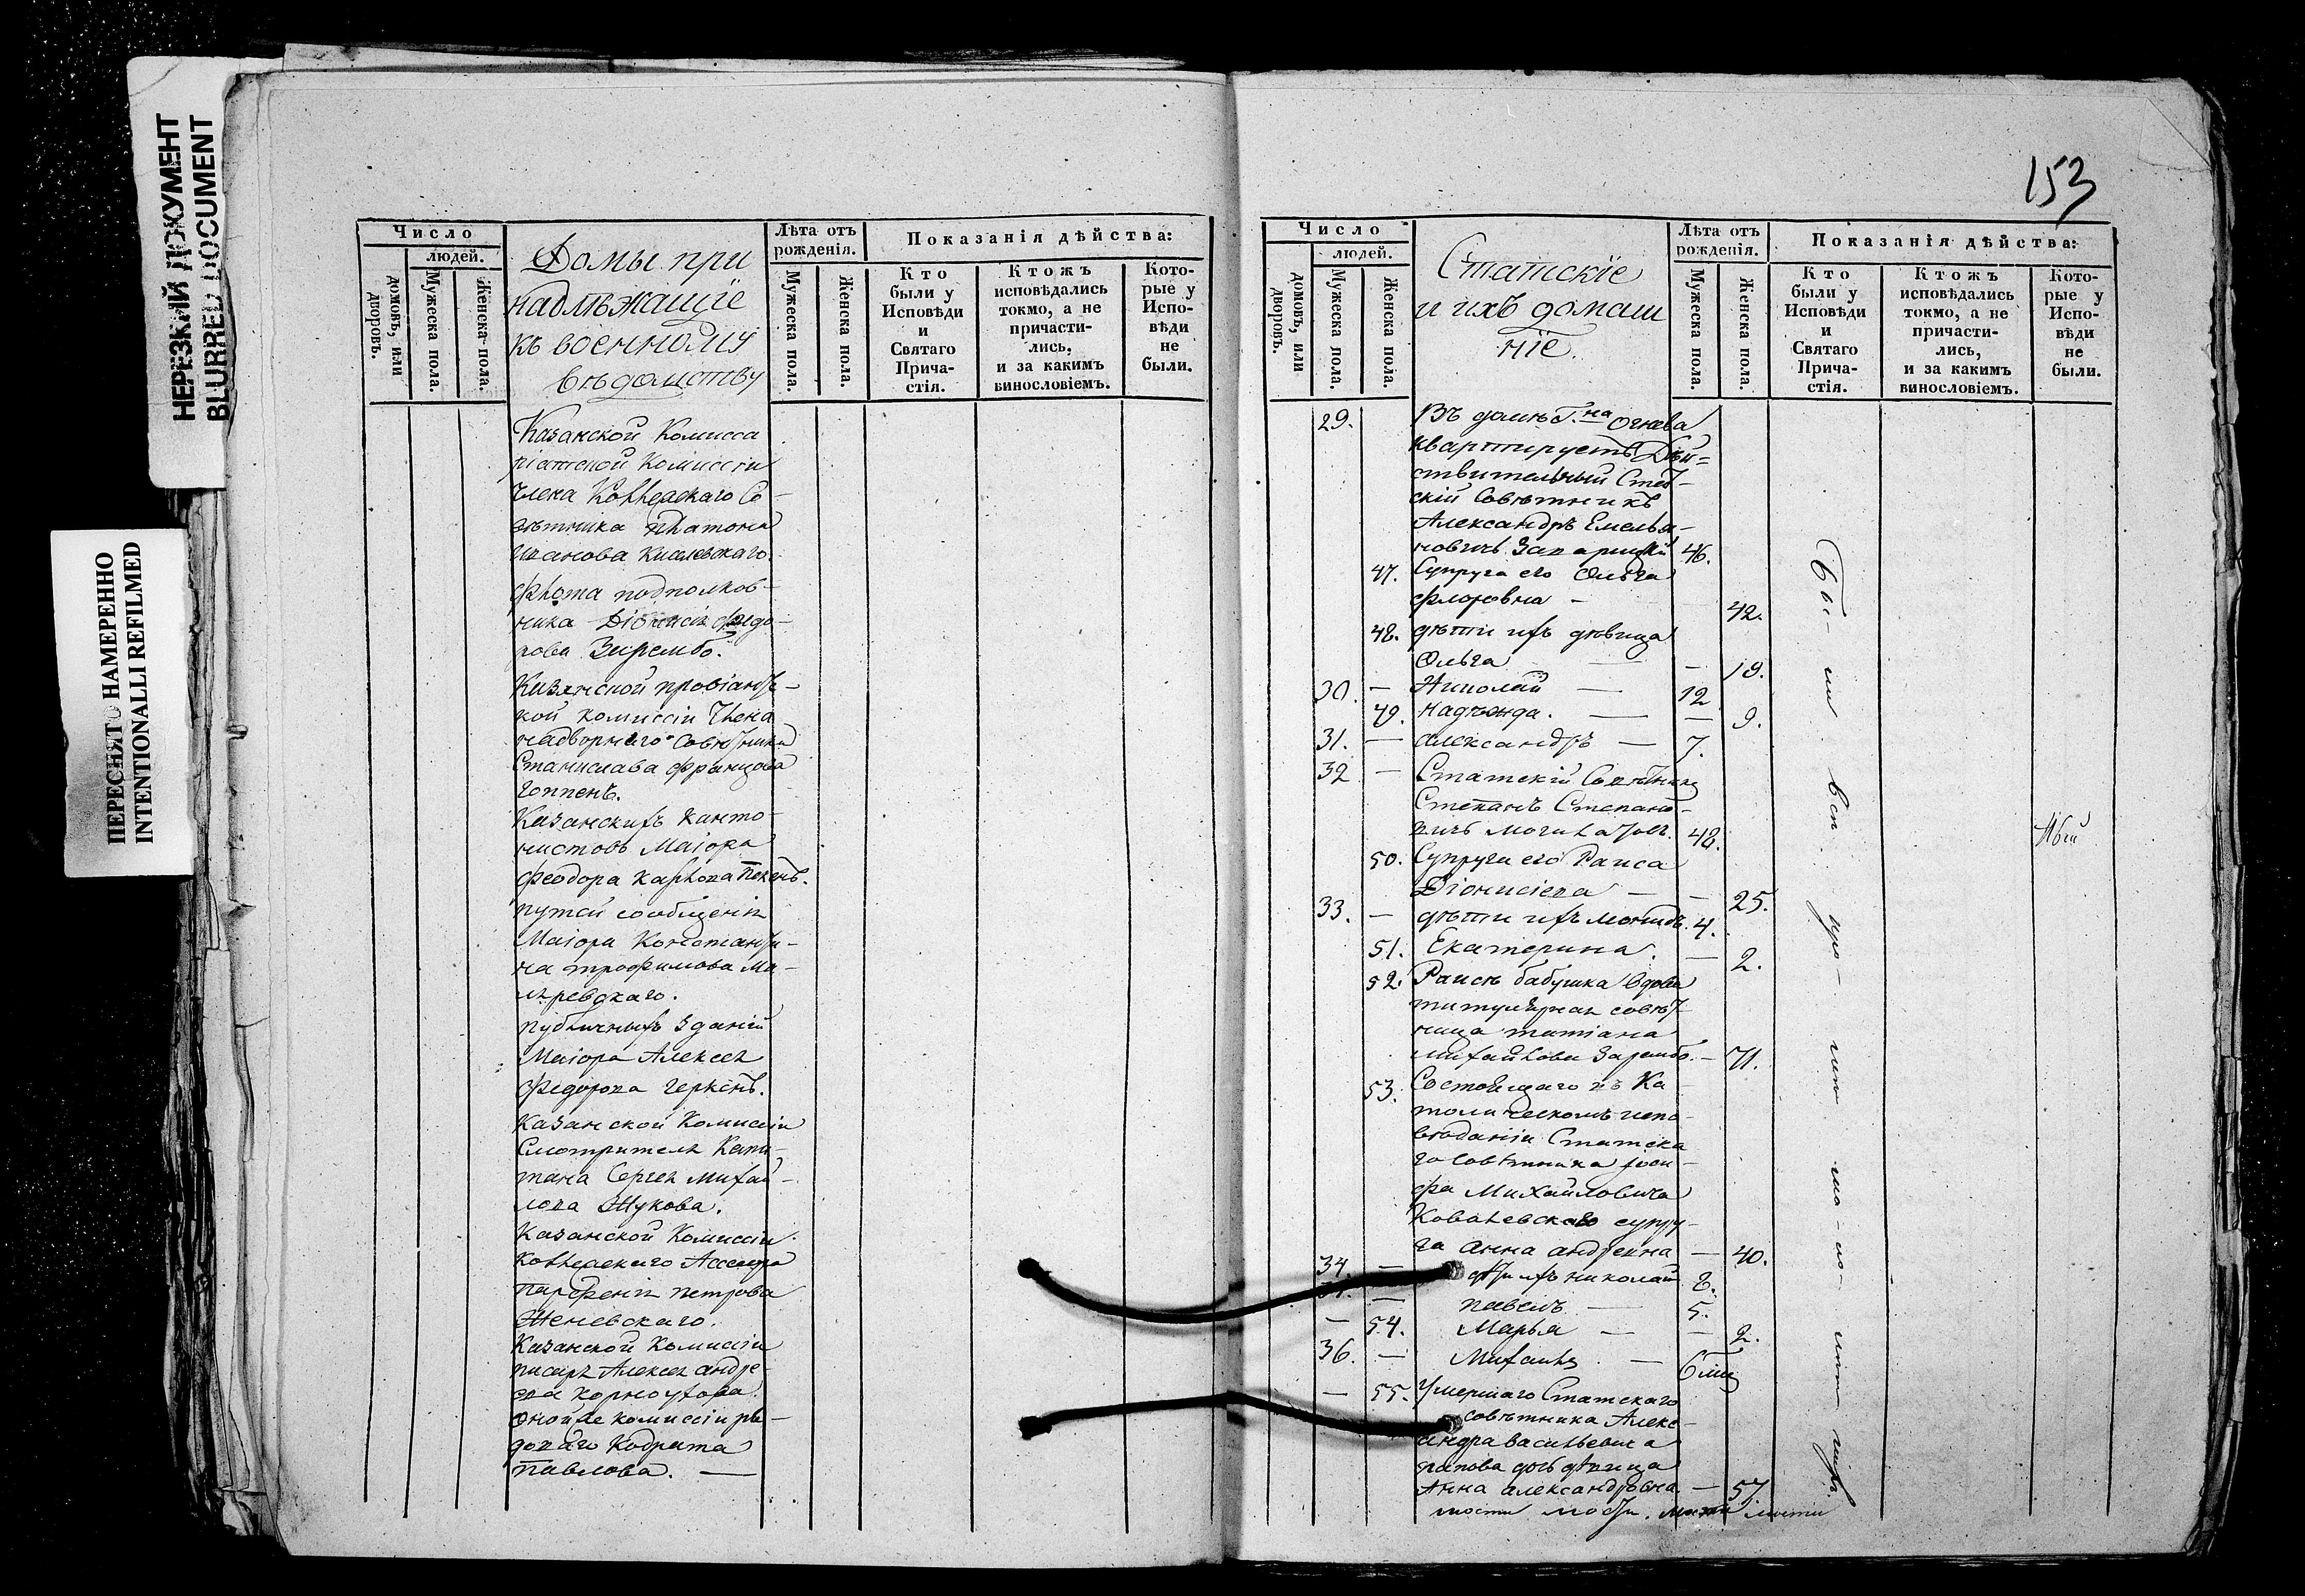 НЕРЕЗКИЙ ДОКУМЕНТ
BLURRED DOCUMENT
ПЕРЕСНЯТО НАМЕРЕННО
INTENTIONALLI REFILMED
Число
людей.
домовъ, или дворовъ.
Мужеска пола.
Женска пола.
Домы при
надлѣжащіе
къ военному
вѣдомству
Лѣта отъ
рожденія.
Мужеска пола.
Женска пола.
Показанія дѣйства:
Кто
были у
Исповѣди
и
Святаго
Прича-
стія.
Ктожъ
исповѣдались
токмо, а не
причасти-
лись,
и за какимъ
винословіемъ.
Кото-
рые у
Испо-
вѣди
не
были.
Казанской Комисса
ріатской Комиссіи
члена Коллежскаго Со-
вѣтника Платона
Иванова Киселевскаго.
Флота подполков-
ника Діонисія Федо-
рова Зарембо.
Казанской провіантс-
кой комиссіи Члена
надворнаго Совѣтника
Станислава Францова
Гоппенъ.
Казанскихъ канто-
нистовъ Маіора
Феодора Карлова
путей сообщенія
Маіора Константи-
на Трофимова Ма-
публичныхъ зданій
Маіора Алексея
Федорова Геркенъ.
Казанской Комиссіи
Смотрителя Капи-
тана Сергея Михай-
лова Жукова.
Казанской Комиссіи
Коллежскаго Ассесора
Парфенія Петрова
Женевскаго.
Казанской Комиссіи
писаря Алексея Андре-
ева Корноухова.
Оной же комиссіи ря-
доваго Кодрата
Павлова. —
153
Число
людей.
домовъ, или дворовъ.
Мужеска пола.
Женска пола.
Статскіе
и ихъ домаш
ніе.
Лѣта отъ
рожденія.
Мужеска пола.
Женска пола.
Показанія дѣйства:
Кто
были у
Исповѣди
и
Святаго
Прича-
стія.
Ктожъ
исповѣдались
токмо, а не
причасти-
лись,
и за какимъ
винословіемъ.
Кото-
рые у
Испо-
вѣди
не
были.
29. Въ домѣ Г.на Огнева
квартируетъ Дѣй=
ствительный Стат-
скій Совѣтникъ
Александръ Емелья-
новичъ 46.
47. Супруга его Ольга
Флоровна — 42.
48. дѣти ихъ дѣвица
Ольга — — 19.
30. — Николай — 12
49. Надѣжда. — — 9.
31. — Александръ — 7.
32 — Статскій Совѣтникъ
Степанъ Степано-
вичъ 48.
50. Супруга его Раиса
Діонисіева — — 25.
33. — дѣти ихъ Леонидъ. 4.
51. Екатерина. — 2.
52. Раисѣ бабушка вдова
титулярная совѣт
ница Татіана
Михайлова Зарембо. — 71.
53. Состоящаго въ Ка
толическомъ испо-
вѣданіи Статска
го Совѣтника Іоси-
фа Михайловича
Ковалевскаго супру-
га Анна Андревна — 40.
34. — дѣти ихъ Николай 8.
— Павелъ — 5.
— 54. Марья — — 2.
36. — Михаилъ. — 6 мѣс
— 55. Умершаго Статскаго
совѣтника Алекс-
андра Васильевича
дочь дѣвица
Анна Александровна — 57